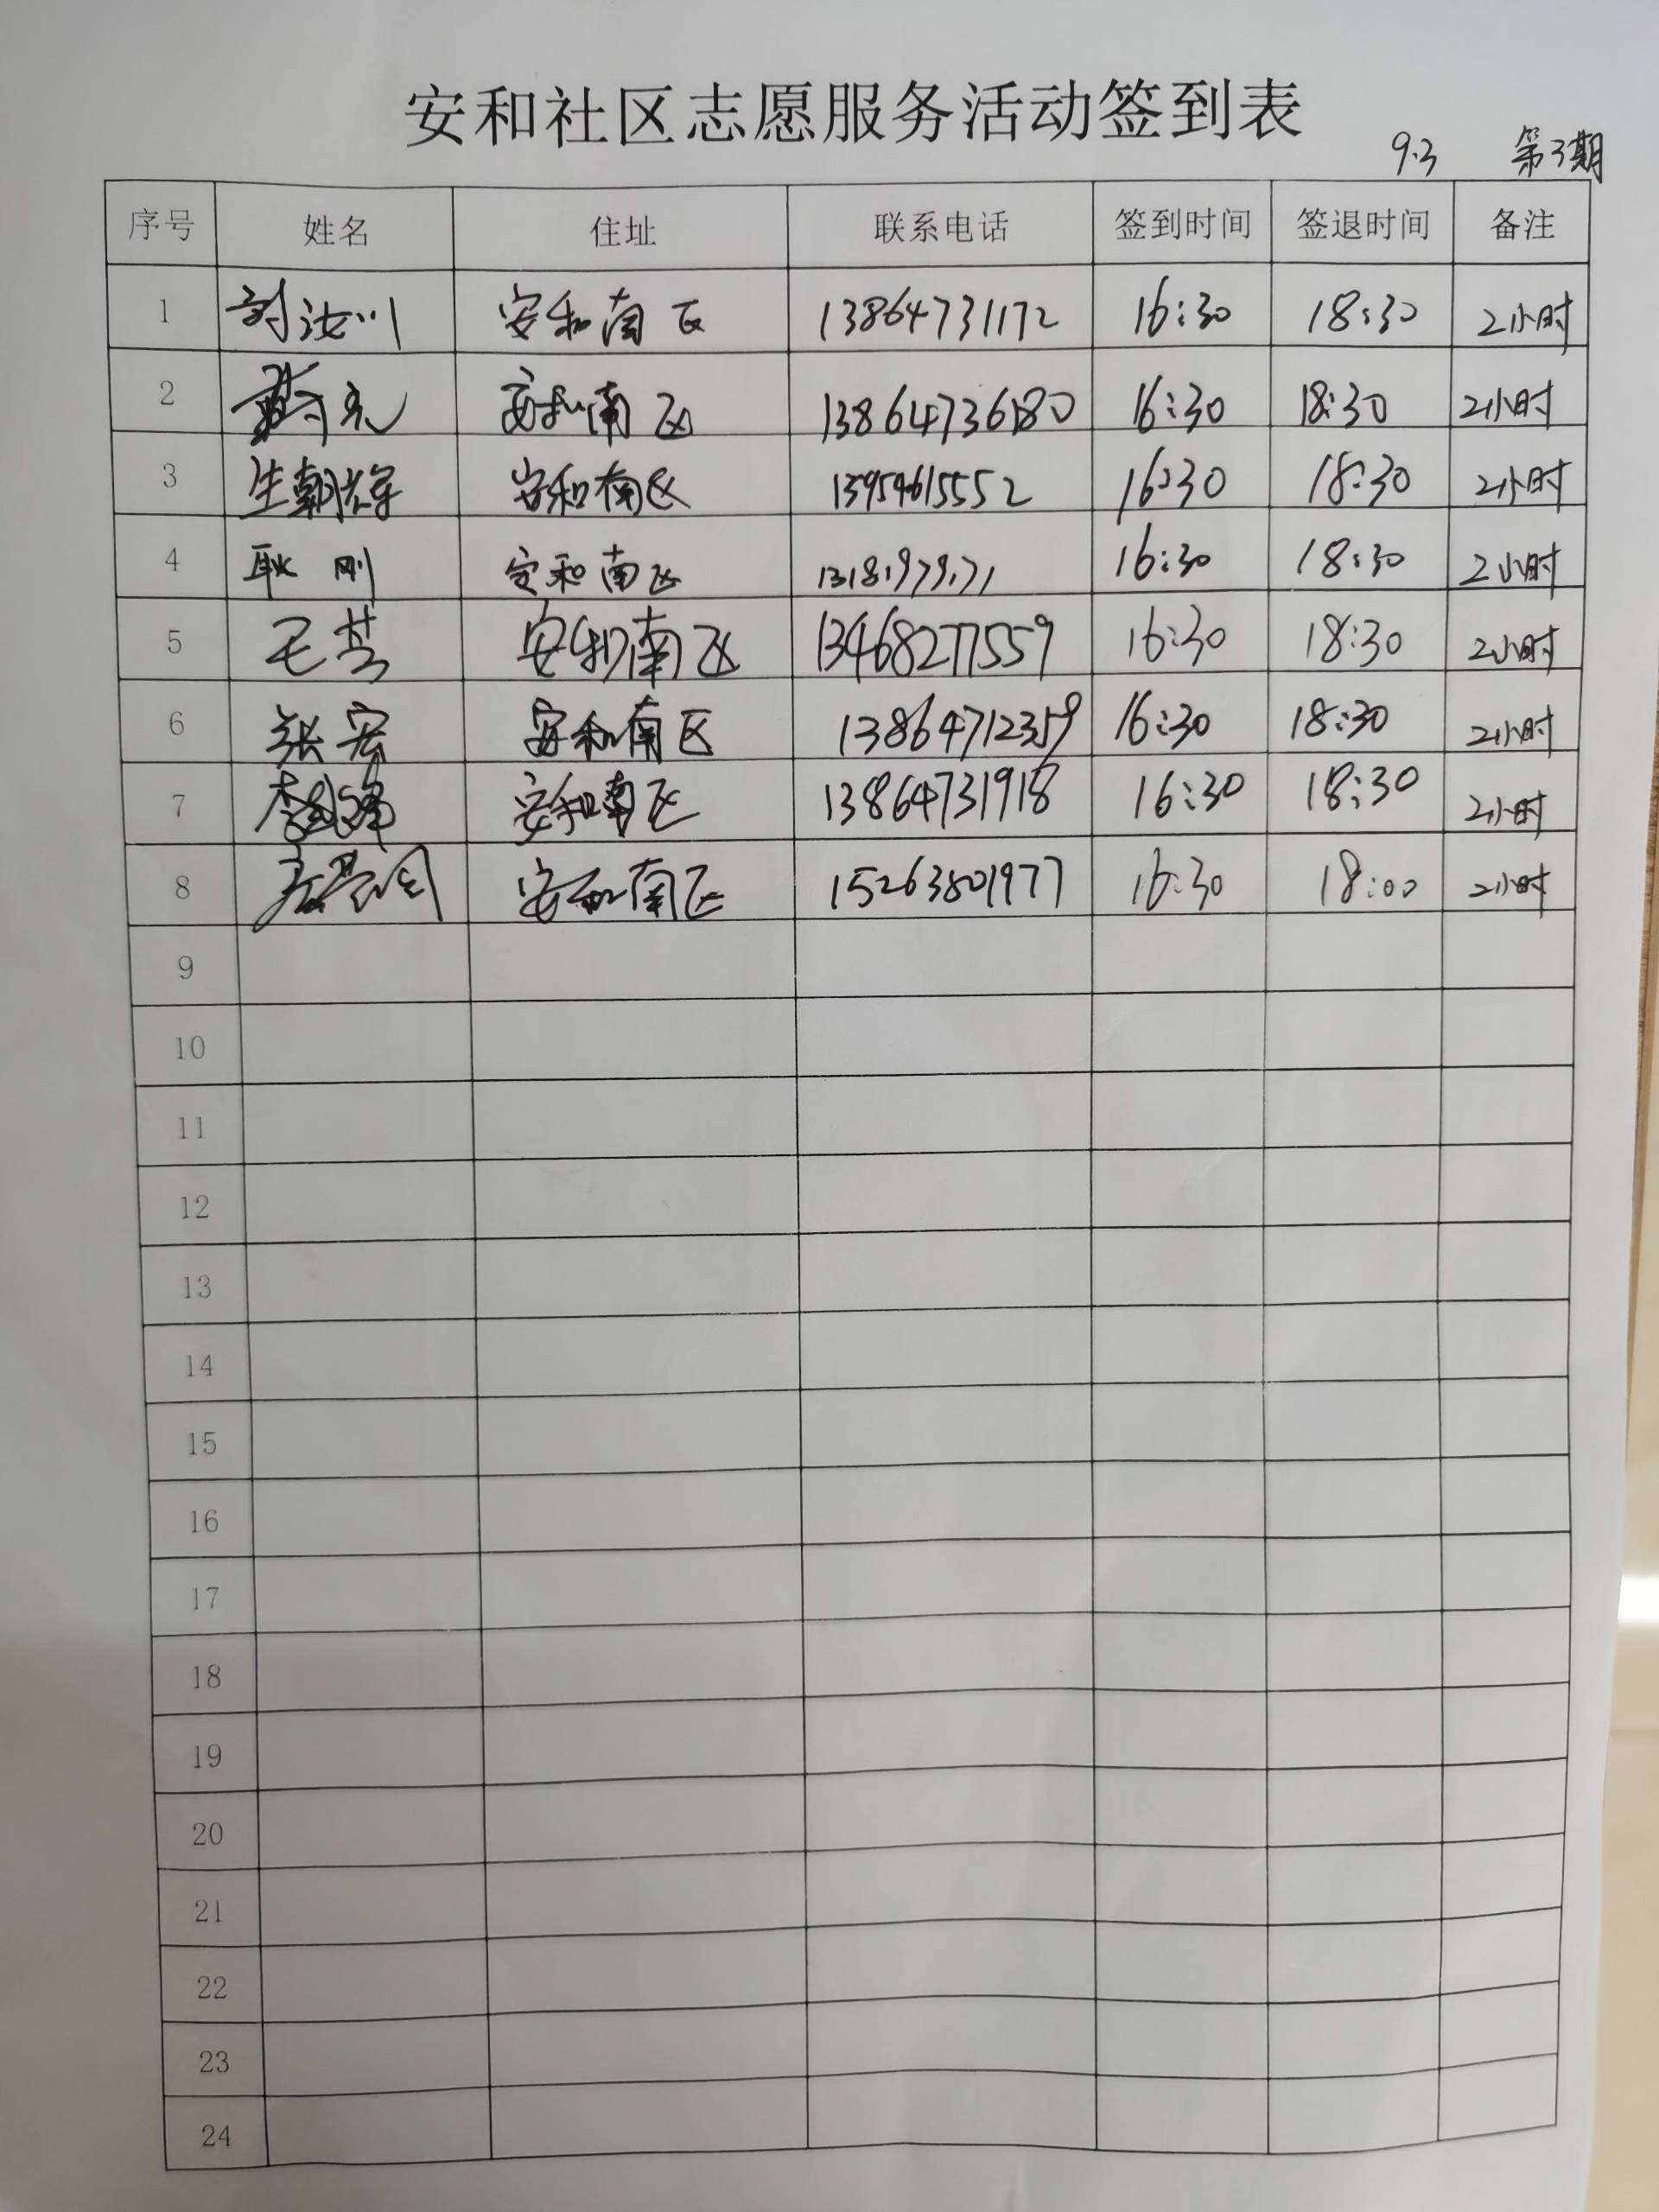 安和社区志愿服务活动签到表
9.3 第3期
序号 姓名 住址 联系电话 签到时间 签退时间 备注
1 安和南区 13864731172 16:30 18:30 2小时
2 安和南区 13864736180 16:30 18:30 2小时
3 生朝辉 安和南区 13954615552 16:30 18:30 2小时
4 耿刚 安和南区 16:30 18:30 2小时
5 毛芸 安和南区 13468277559 16:30 18:30 2小时
6 张宏 安和南区 13864712359 16:30 18:30 2小时
7 安和南区 13864731918 16:30 18:30 2小时
8 安和南区 15263801977 16:30 18:00 2小时
9
10
11
12
13
14
15
16
17
18
19
20
21
22
23
24